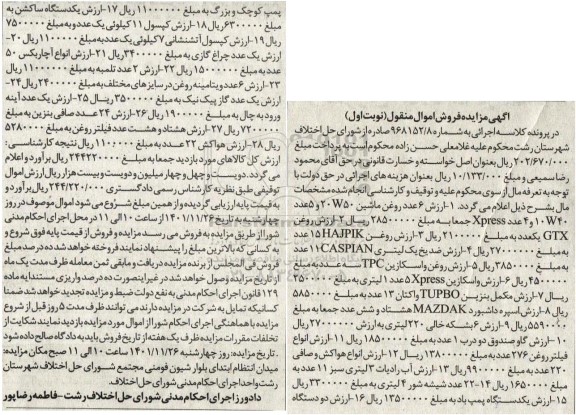 آگهی مزایده فروش اموال منقول (نوبت اول)
در پرونده کلاسه اجرائی به شماره ۹۶۸۱۵۲/۸ صادره از شورای حل اختلاف
شهرستان رشت محکوم علیه غلامعلی حسن زاده محکوم است به پرداخت مبلغ
۲۰۲/۶۷۰/۰۰۰ ریال بعنوان اصل خواسته و خسارت قانونی در حق آقای محمود
رضا سمیعی و مبلغ ۱۰/۱۳۳/۰۰۰ ریال بعنوان هزینه های اجرائی در حق دولت با
توجه به تعرفه مال از سوی محکوم علیه و توقیف و کارشناسی انجام شده مشخصات
مال بشرح ذیل اعلام می گردد. ۱-ارزش ۶ عدد روغن ماشین ۲۰W۵۰ و ۵ عدد
۱۰W۴۰ و ۴ عدد Xpress جمعا به مبلغ ۲۸۵۰۰۰۰۰ ریال ۲-ارزش روغن
GTX یکعدد به مبلغ ۲۱۰۰۰۰۰ ریال ۳-ارزش روغن HAJPIK ۱۵ عدد
به مبلغ ۲۷۰۰۰۰۰۰ ریال ۴-ارزش ضدیخ یک لیتری CASPIAN ۱۱ عدد
به مبلغ ۳۸۵۰۰۰۰ ریال ۵-ارزش روغن واسکازین TPC سه عدد به مبلغ
۴۵۰۰۰۰۰ ریال ۶-ارزش واسکازین Xpress ۵ عدد ۱ لیتری به مبلغ ۳۵۰۰۰۰۰
ریال ۷-ارزش مکمل بنزین TUPBO واکتان ۱۳ عدد به مبلغ ۵۸۵۰۰۰۰
ریال ۸-ارزش اسپر داشبورد MAZDAK هشتاد و شش عدد جمعا به مبلغ
۵۵۹۰۰۰۰۰ ریال ۹-ارزش ۶ بشکه خالی ۲۲۰ لیتری به ارزش ۲۷۰۰۰۰۰۰ ریال
۱۰-ارزش گاو صندوق دو درب ۱ عدد به مبلغ ۱۸۵۰۰۰۰۰ ریال ۱۱-ارزش انواع
فیلتر روغن ۲۷۶ عدد به مبلغ ۱۳۸۰۰۰۰۰ ریال ۱۲-ارزش انواع هواکش و صافی
۲۲۰ عدد به مبلغ ۹۹۰۰۰۰۰ ریال ۱۳-ارزش آب رادیات ۳ لیتری سبز ۱۱ عدد به
مبلغ ۱۶۵۰۰۰۰ ریال ۱۴-۲۲ عدد شیشه شور ۴ لیتری به مبلغ ۳۳۰۰۰۰۰ ریال
۱۵-ارزش یکدستگاه پمپ باد به مبلغ ۱۳۵۰۰۰۰۰ ریال ۱۶-ارزش دو دستگاه
پمپ کوچک و بزرگ به مبلغ ۱۱۰۰۰۰۰۰ ریال ۱۷-ارزش یکدستگاه ساکشن به
مبلغ ۶۳۰۰۰۰۰ ریال ۱۸-ارزش کپسول ۱۱ کیلوئی یک عدد و به مبلغ ۷۵۰۰۰۰۰
ریال ۱۹-ارزش کپسول آتشنشانی ۷ کیلوئی یک عدد به مبلغ ۱۱۰۰۰۰۰ ریال ۲۰-
ارزش یک عدد چراغ گازی به مبلغ ۳۴۰۰۰۰۰ ریال ۲۱-ارزش انواع آچاریکس ۵۰
عدد به مبلغ ۱۵۰۰۰۰۰۰ ریال ۲۲-ارزش ۲ عدد تلمبه به مبلغ ۱۱۰۰۰۰۰ ریال
۲۳-ارزش ۶ عدد ویتامینه روغن در سایز های مختلف به مبلغ ۲۴۰۰۰۰۰ ریال ۲۴-
ارزش یک عدد گاز پیک نیک به مبلغ ۳۵۰۰۰۰۰ ریال ۲۵-ارزش یک عدد آینه
ورود به چال به مبلغ ۱۹۰۰۰۰۰ ریال ۲۶-ارزش ۲۴ عدد صافی بنزین به مبلغ
۷۲۰۰۰۰۰ ریال ۲۷-ارزش هشتاد و هشت عدد فیلتر روغن به مبلغ ۵۲۸۰۰۰۰
ریال ۲۸-ارزش هواکش ۲۲ عدد به مبلغ ۱۱۰۰۰۰۰ ریال نتیجه کارشناسی:
ارزش کل کالاهای مورد بازدید جمعا به مبلغ ۲۴۴۲۲۰۰۰۰ ریال برآورد و اعلام
می گردد. دویست و چهل و چهار میلیون و دویست و بیست هزار ریال ارزش اموال
توقیفی طبق نظریه کارشناس رسمی دادگستری ۲۴۴/۲۲۰/۰۰۰ ریال برآورد و
به قیمت پایه ارزیابی گردیده و از همین مبلغ شروع می شود اموال موصوف در روز
چهارشنبه به تاریخ ۱۴۰۱/۱۱/۲۶ از ساعت ۱۰ الی ۱۱ در محل اجرای احکام مدنی
شورا از طریق مزایده به فروش می رسد مزایده و فروش از قیمت پایه فوق شروع و
به کسانی که بالاترین مبلغ را پیشنهاد نمایند فروخته خواهد شد ده درصد مبلغ
فروش فی المجلس از برنده مزایده دریافت و مابقی ثمن معامله ظرف مدت یک ماه
از تاریخ مزایده وصول خواهد شد در غیر اینصورت ده درصد واریزی مستندا به ماده
۱۲۹ قانون اجرای احکام مدنی به نفع دولت ضبط و مزایده تجدید خواهد شد ضمنا
کسانیکه تمایل به شرکت در مزایده دارند می توانند ظرف مدت ۵ روز قبل از شروع
مزایده با هماهنگی اجرای احکام شورا از اموال مورد مزایده بازدید نمایند شکایت از
تخلفات مقررات مزایده ظرف یک هفته از تاریخ فروش باید به دادگاه صالح داده شود
. تاریخ مزایده: روز چهارشنبه ۱۴۰۱/۱۱/۲۶ ساعت ۱۰ الی ۱۱ صبح مکان مزایده:
میدان انتظام ابتدای بلوار شیون فومنی مجتمع شورای حل اختلاف شهرستان
رشت واحد اجرای احکام مدنی شورای حل اختلاف.
دادورز اجرای احکام مدنی شورای حل اختلاف رشت-فاطمه رضاپور